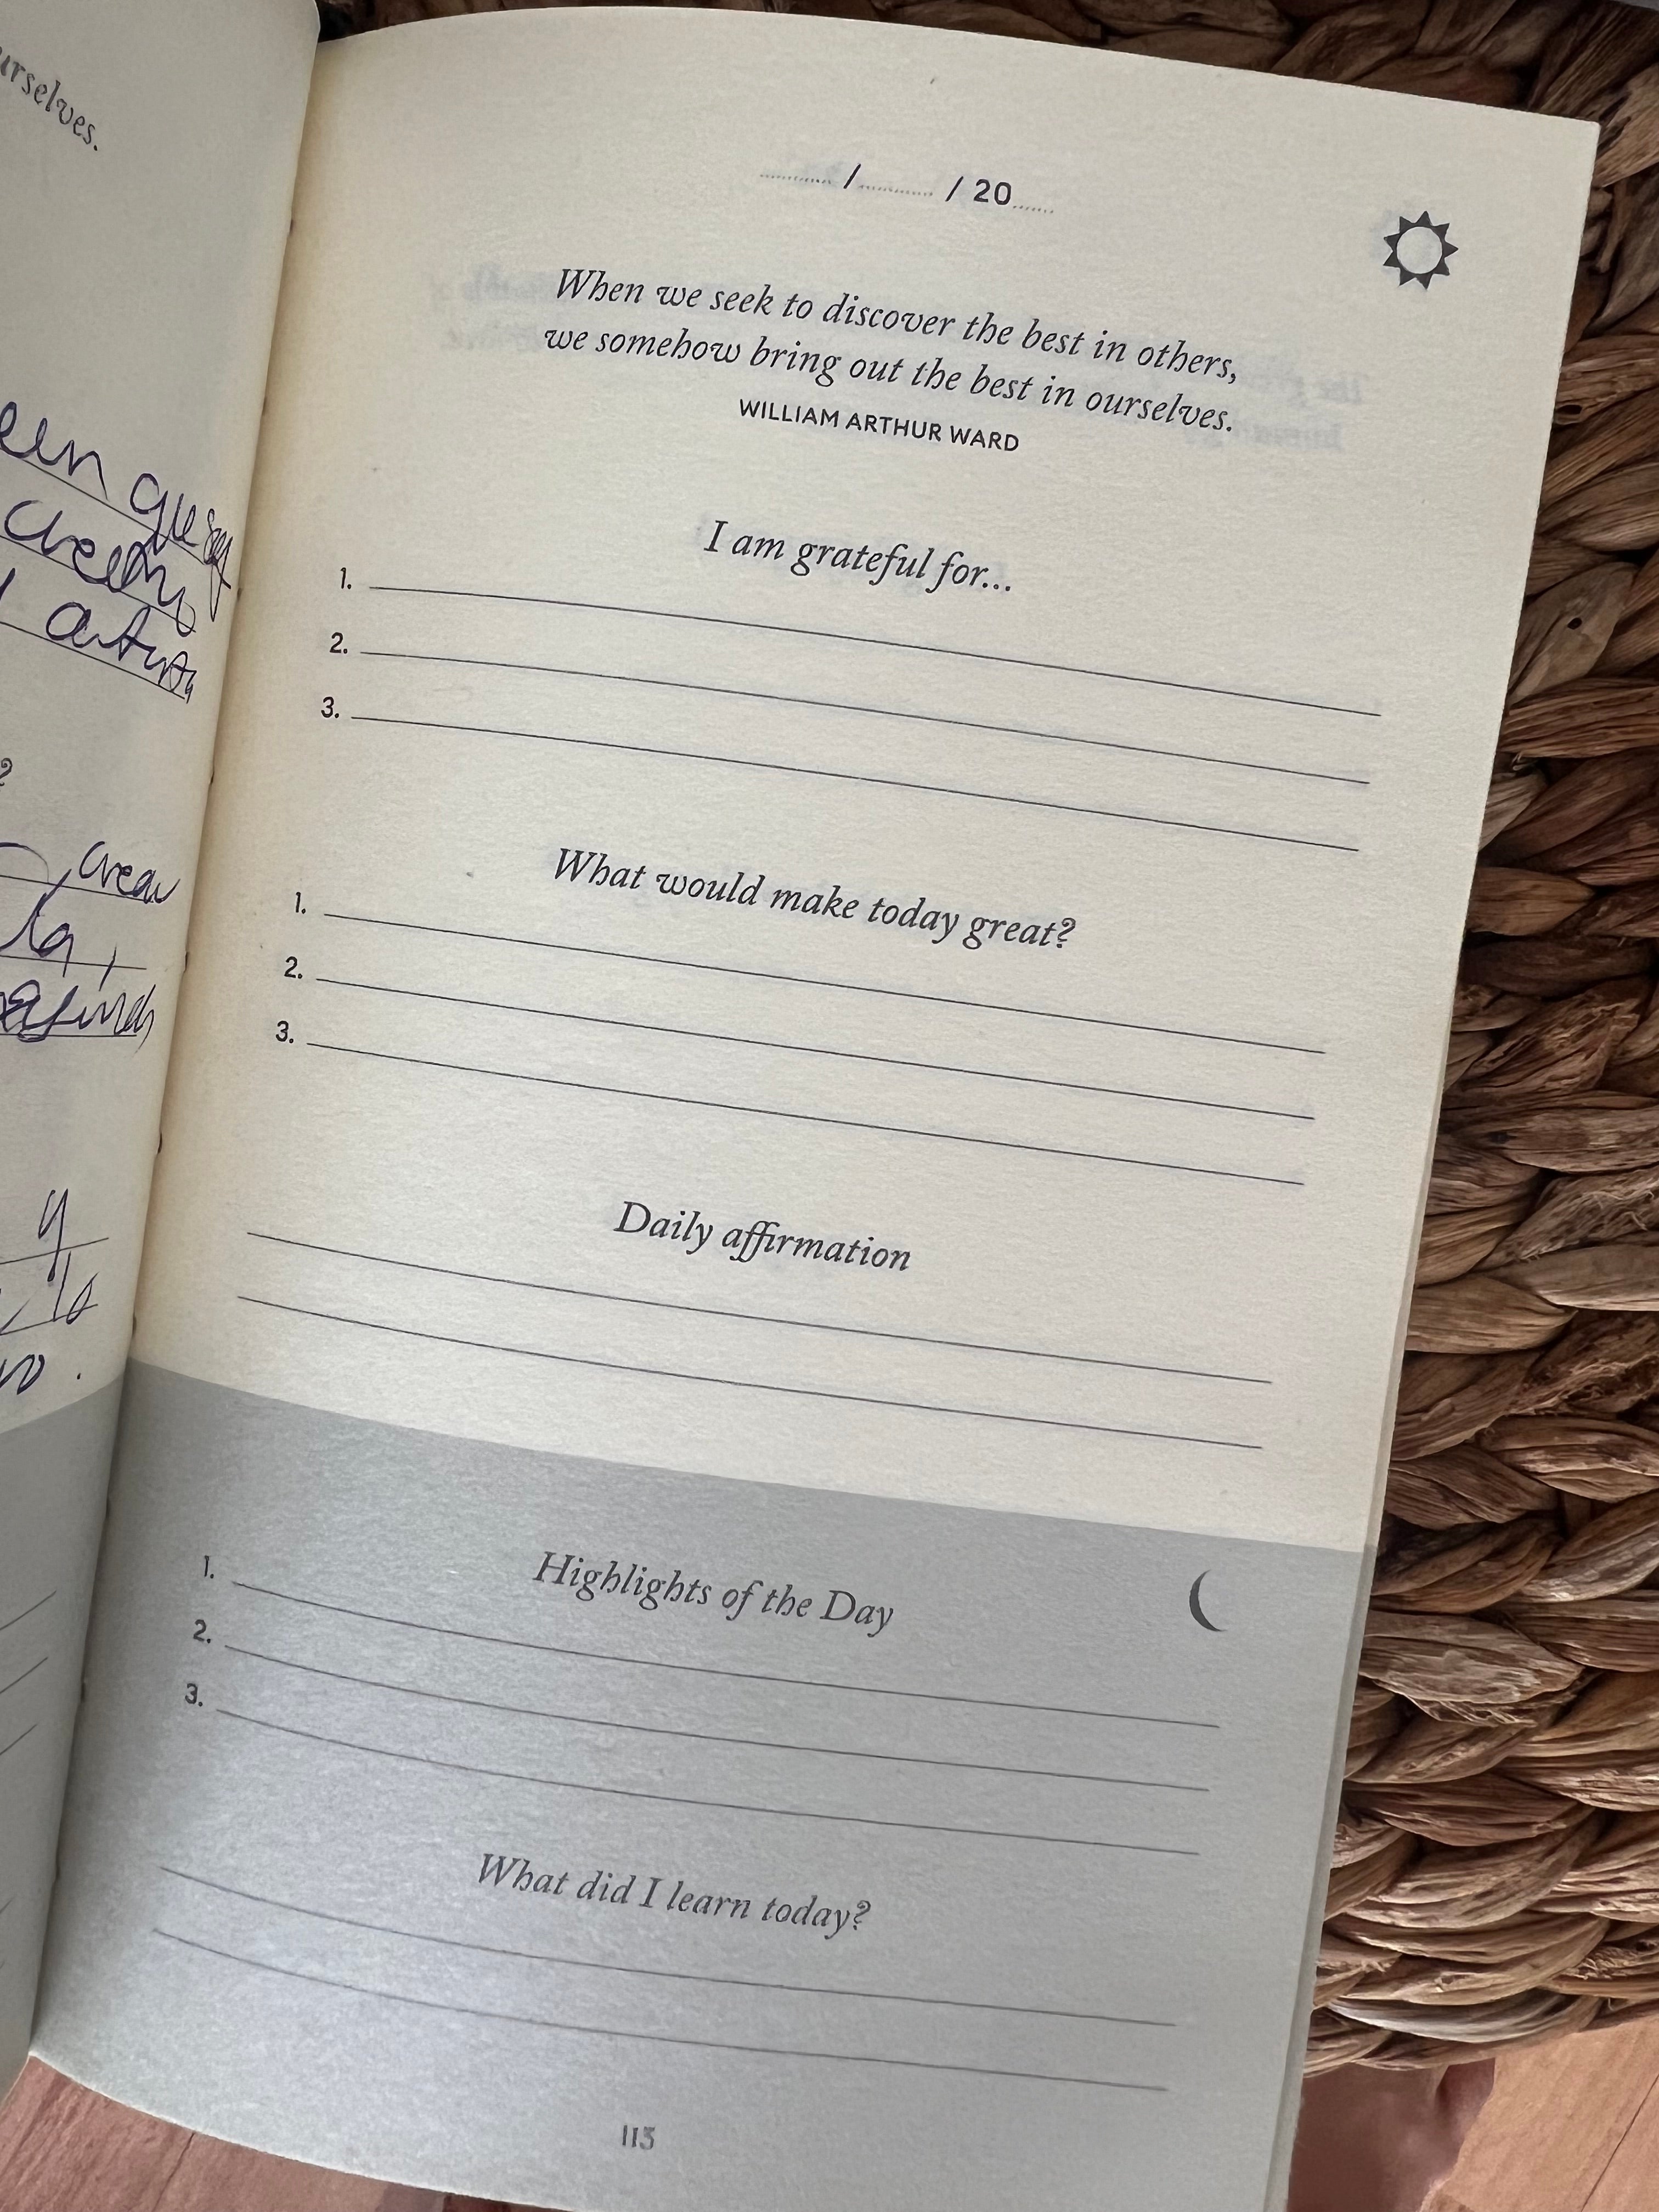 urselves.
een que
crea
la,
y
lo
/ / 20
When we seek to discover the best in others,
we somehow bring out the best in ourselves.
WILLIAM ARTHUR WARD
I am grateful for...
1.
2.
3.
What would make today great?
1.
2.
3.
Daily affirmation
Highlights of the Day
1.
2.
3.
What did I learn today?
113